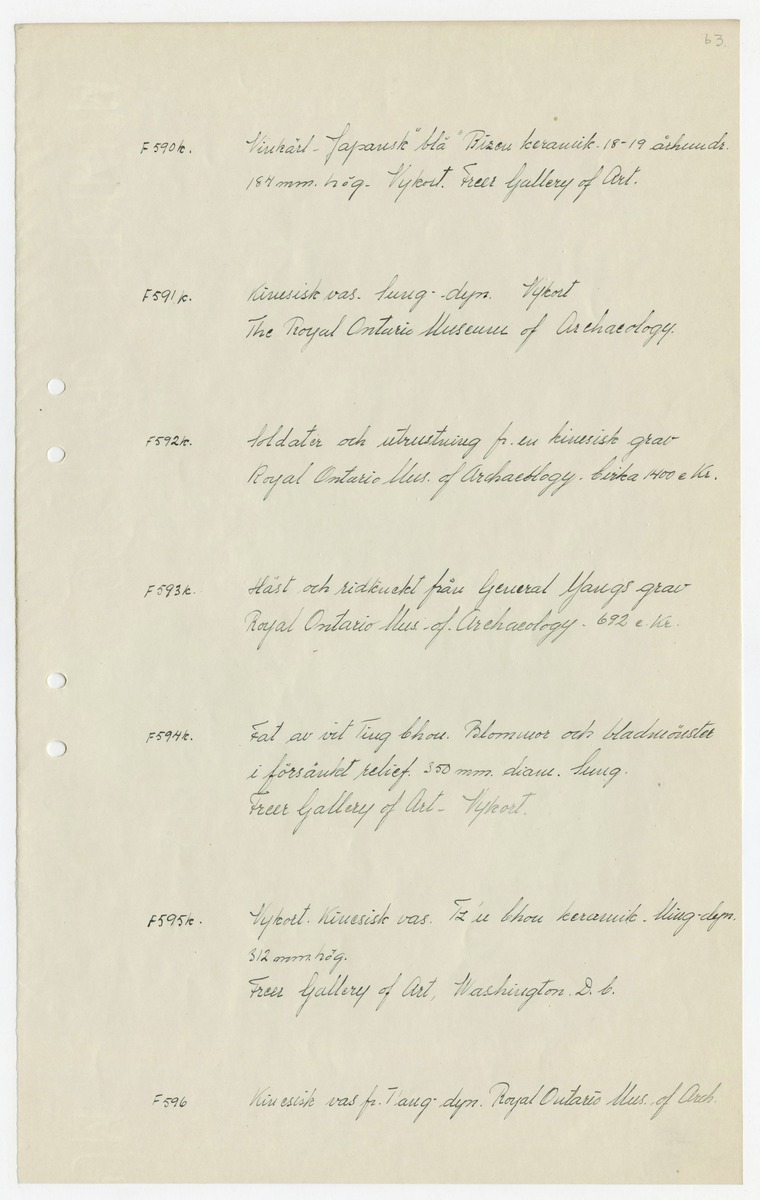 63.
F590k. Vinkärl - Japansk "blå" Bizen keramik. 18-19 århundr.
184 mm. hög - Vykort. Freer Gallery of Art.
F591k. Kinesisk vas. Sung-dyn. Vykort
The Royal Ontario Museum of Archaeology.
F592k. Soldater och utrustning fr. en kinesisk grav
Royal Ontario Mus. of Archaeology. Cirka 1400 e Kr.
F593k. Häst och ridknekt från General Yangs grav
Royal Ontario Mus. of. Archaeology - 692 e. Kr.
F594k. Fat av vit Ting Chou. Blommor och bladmönster
i försänkt relief. 350 mm. diam. Sung.
Freer Gallery of Art - Vykort.
F595k. Vykort. Kinesisk vas. Tz'u Chou keramik. Ming-dyn.
312 mm. hög.
Freer Gallery of Art, Washington. D. C.
F596 Kinesisk vas fr. T'ang-dyn. Royal Ontario Mus. of Arch.